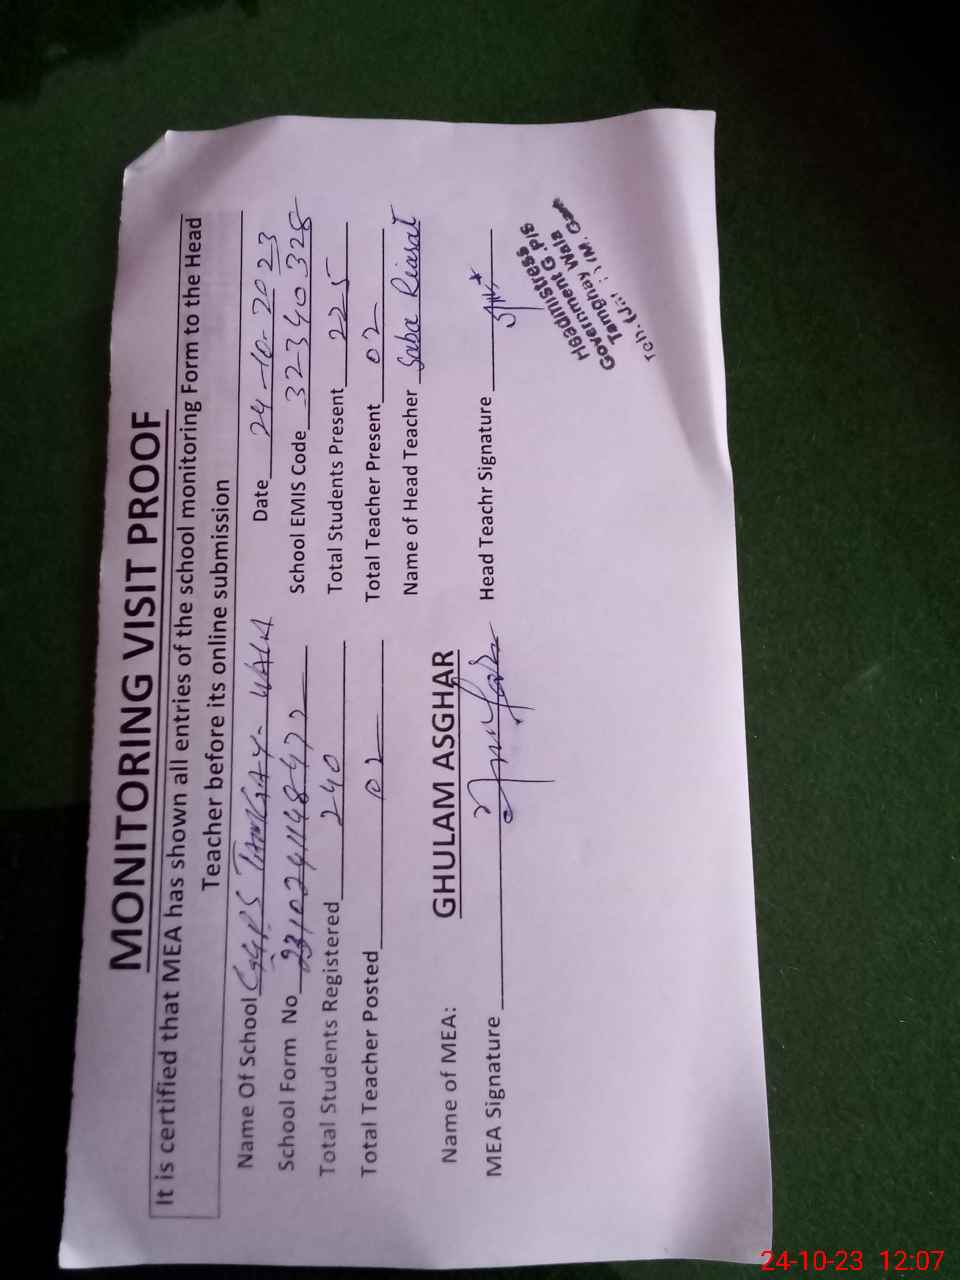 MONITORING VISIT PROOF
It is certified that MEA has shown all entries of the school monitoring Form to the Head
Teacher before its online submission
Name Of School GGPS TAMGAY-WALA Date 24-10-2023
School Form No School EMIS Code 32340328
Total Students Registered 240 Total Students Present 225
Total Teacher Posted 02 Total Teacher Present 02
Name of Head Teacher Saba Riasat
Name of MEA: GHULAM ASGHAR
MEA Signature Head Teachr Signature
Headmistress
Government G.P/S
Tamghay Wala
Teh.
24-10-23 12:07